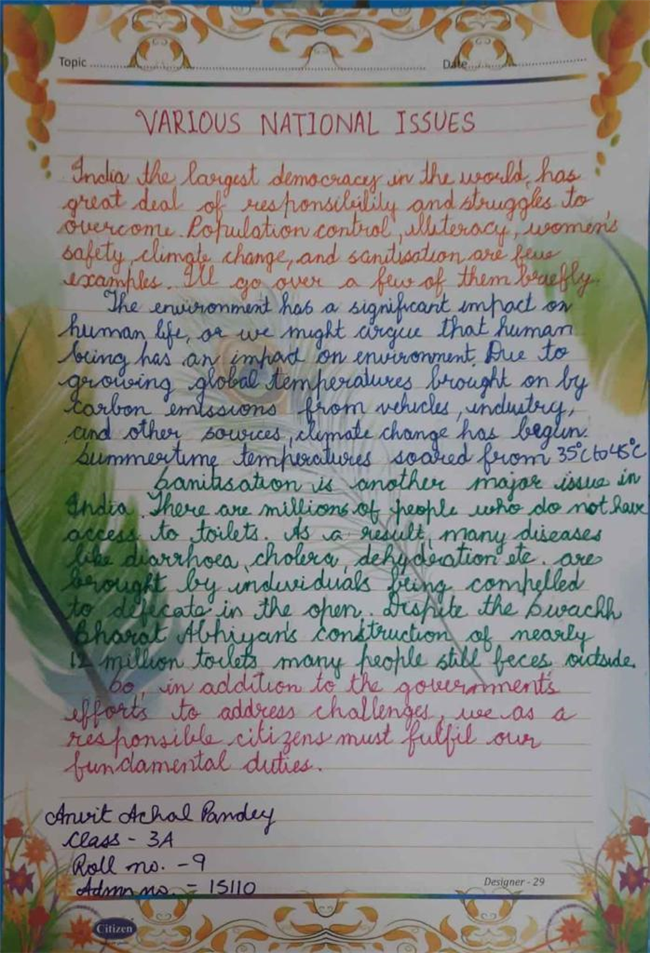 Topic
Date
VARIOUS NATIONAL ISSUES
India the largest democracy in the world, has
great deal of responsibility and struggles to
overcome. Population control, illiteracy, women's
safety, climate change, and sanitisation are few
examples. I'll go over a few of them briefly.
The environment has a significant impact on
human life, or we might argue that human
being has an impact on environment. Due to
growing global temperatures brought on by
carbon emissions from vehicles, industry,
and other sources, climate change has begun.
Summertime temperatures soared from 35°C to 45°C
Sanitisation is another major issue in
India. There are millions of people who do not have
access to toilets. As a result, many diseases
like diarrhoea, cholera, dehyderation etc. are
brought by individuals being compelled
to defecate in the open. Dispite the Swachh
Bharat Abhiyan's construction of nearly
12 million toilets many people still feces outside.
So, in addition to the government's
efforts to address challenges, we as a
responsible citizens must fulfil our
fundamental duties.
Anvit Achal Pandey
Class - 3A
Roll no. - 9
Admn no. = 15110
Designer - 29
Citizen